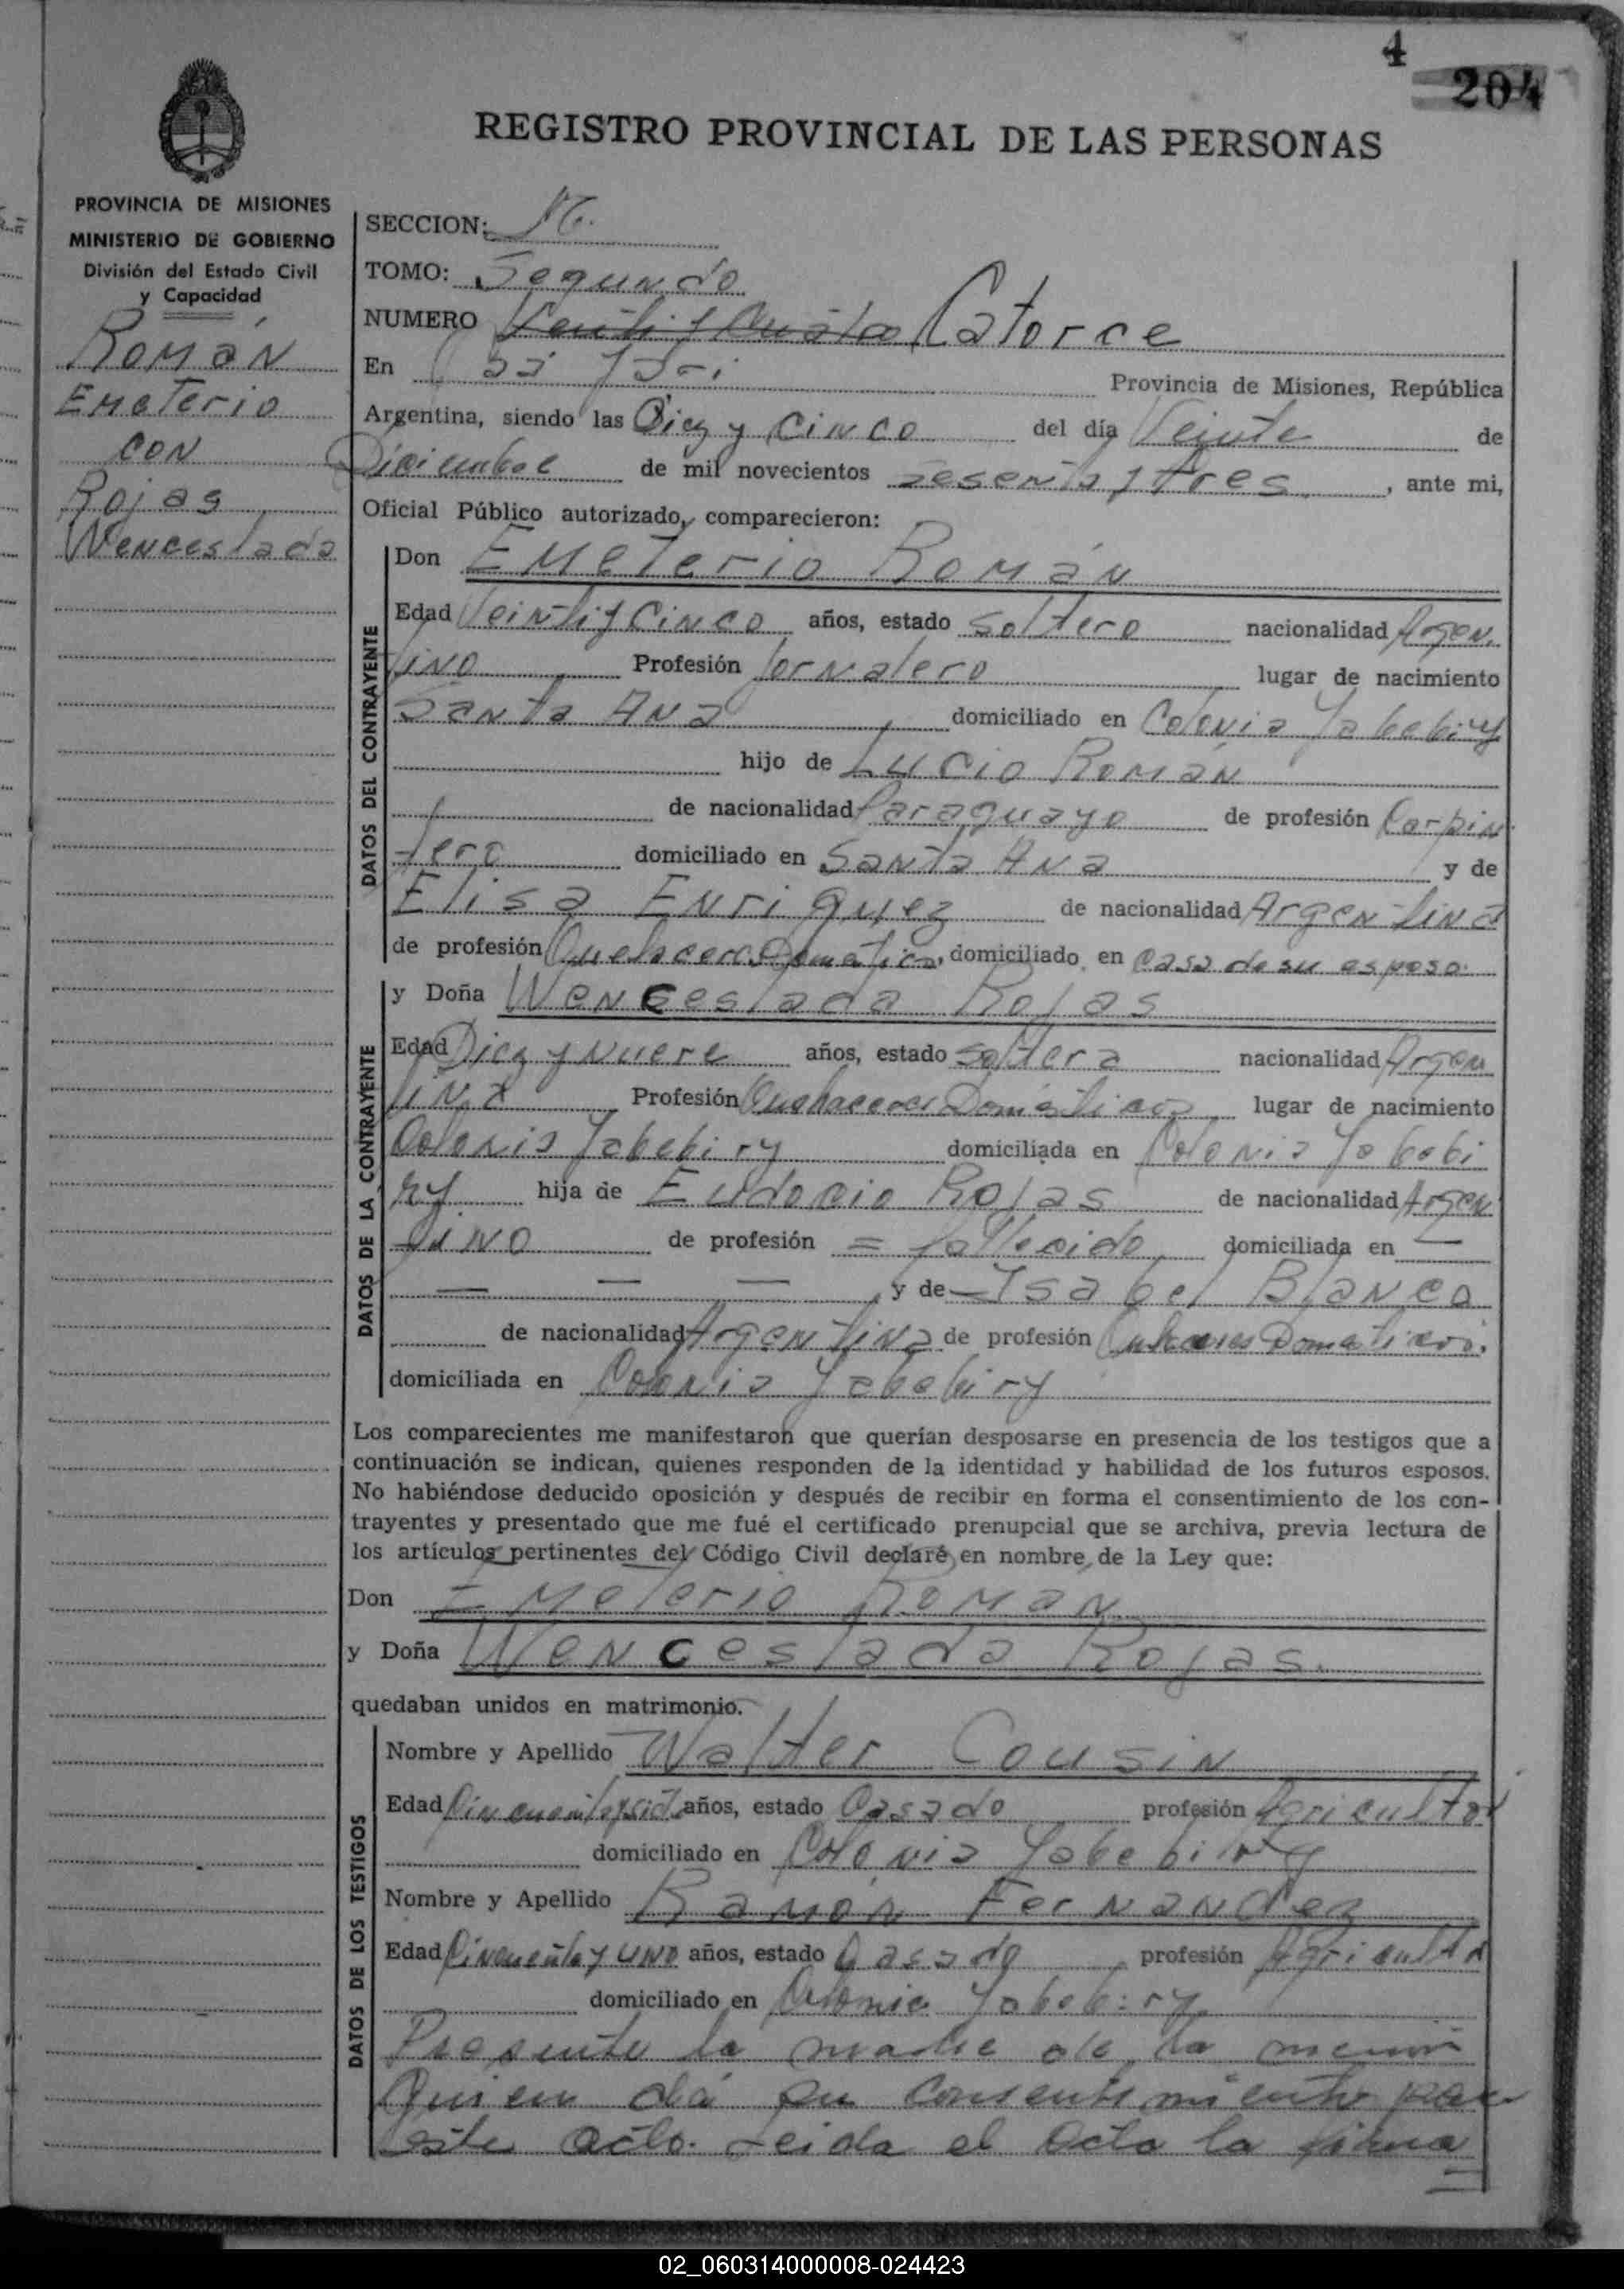 4
204
REGISTRO PROVINCIAL DE LAS PERSONAS
PROVINCIA DE MISIONES
MINISTERIO DE GOBIERNO
División del Estado Civil
y Capacidad
Román
Emeterio
con
Rojas
Wenceslada
SECCION:
TOMO: Segundo
NUMERO Catorce
En Caá Yarí Provincia de Misiones, República
Argentina, siendo las Diez y Cinco del día Veinte de
Diciembre de mil novecientos Sesenta y tres, ante mi,
Oficial Público autorizado, comparecieron:
DATOS DEL CONTRAYENTE
Don Emeterio Román
Edad Veinti y Cinco años, estado Soltero nacionalidad Argen
tino Profesión Jornalero lugar de nacimiento
Santa Ana domiciliado en Colonia Yabebiry
hijo de Lucio Román
de nacionalidad Paraguayo de profesión Carpin
tero domiciliado en Santa Ana y de
Elisa Enriquez de nacionalidad Argentina
de profesión domiciliado en casa de su esposo.
DATOS DE LA CONTRAYENTE
y Doña Wenceslada Rojas
Edad Diez y Nueve años, estado Soltera nacionalidad Argen
tina Profesión Quehaceres Domésticos lugar de nacimiento
Colonia Yabebiry domiciliada en Colonia Yabebi
ry hija de Eudocio Rojas de nacionalidad Argen
tino de profesión = fallecido domiciliada en —
— — — y de — Isabel Blanco
de nacionalidad Argentina de profesión
domiciliada en Colonia Yabebiry
Los comparecientes me manifestaron que querían desposarse en presencia de los testigos que a
continuación se indican, quienes responden de la identidad y habilidad de los futuros esposos.
No habiéndose deducido oposición y después de recibir en forma el consentimiento de los con-
trayentes y presentado que me fué el certificado prenupcial que se archiva, previa lectura de
los artículos pertinentes del Código Civil declaré en nombre de la Ley que:
Don Emeterio Roman
y Doña Wenceslada Rojas.
quedaban unidos en matrimonio.
DATOS DE LOS TESTIGOS
Nombre y Apellido Walter Cousin
Edad años, estado Casado profesión Agricultor
domiciliado en Colonia Yabebiry
Nombre y Apellido Ramón Fernandez
Edad Cincuenta y uno años, estado Casado profesión Agricultor
domiciliado en Colonia Yabebiry
Presente la madre de la menor
quien dá su consentimiento para
este acto. Leida el acta la firma
02_060314000008-024423